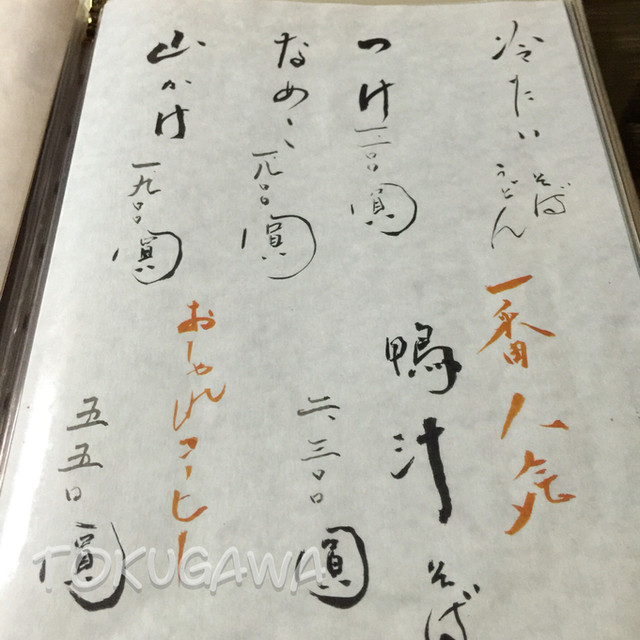 冷たい そば うどん
つけ 一、二〇〇圓
なめこ 一、八〇〇圓
山かけ 一、九〇〇圓
一番人気
鴨汁そば
二、三〇〇圓
おしゃれコーヒー
五五〇圓
TOKUGAWA